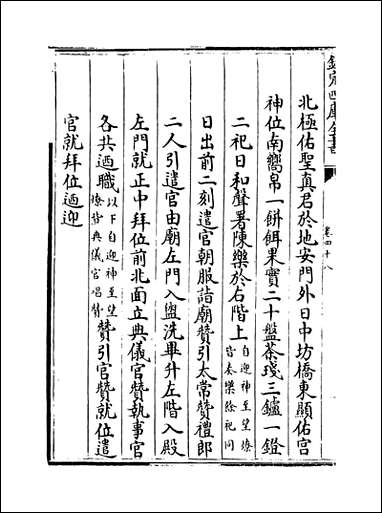 欽定四庫全書
卷四十八
北極佑聖真君於地安門外日中坊橋東顯佑宮
神位南嚮帛一餅餌果實二十盤茶琖三鑪一鐙
二祀日和聲署陳樂於右階上自迎神至望燎皆奏樂餘祀同
日出前二刻遣官朝服詣廟贊引太常贊禮郎
二人引遣官由廟左門入盥洗畢升左階入殿
左門就正中拜位前北面立典儀官贊執事官
各共迺職以下自迎神至望燎皆典儀官唱贊贊引官贊就位遣
官就拜位迺迎